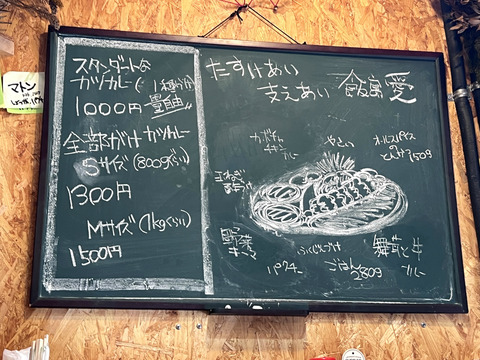 マトン
スタンダードな
カツカレー(1種かけ)
1000円
全部がけ カツカレー
Sサイズ(800gぐらい)
1300円
Mサイズ(1kgぐらい)
1500円
たすけあい
支えあい
愛
カボチャ
チキン
カレー
やさい
オールスパイス
のとんかつ150g
玉ねぎ
野菜
キーマ
ふくじんづけ
パクチー
ごはん280g
舞茸と牛
カレー